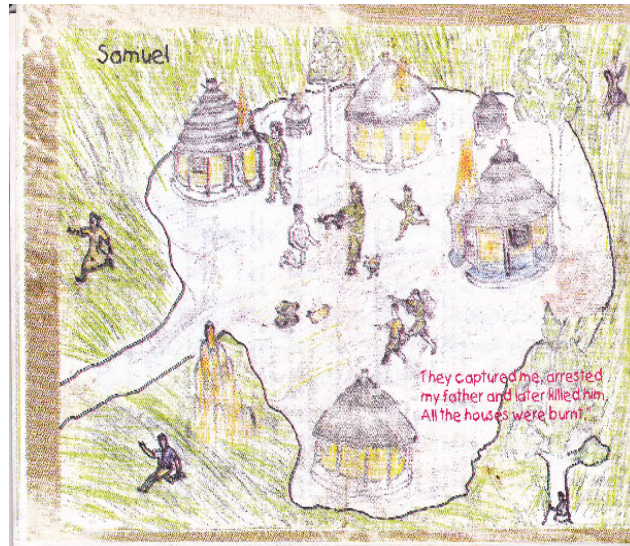 Samuel
They captured me, arrested
my father and later killed him.
All the houses were burnt."